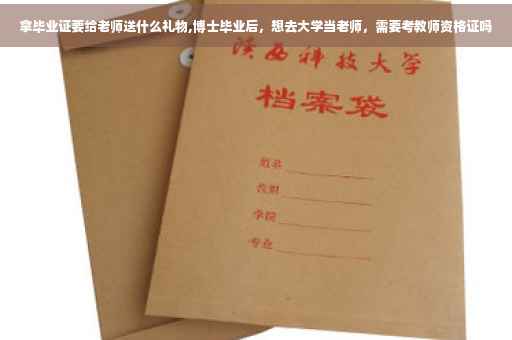 拿毕业证要给老师送什么礼物,博士毕业后，想去大学当老师，需要考教师资格证吗
陕西科技大学
档案袋
姓名
学院
专业